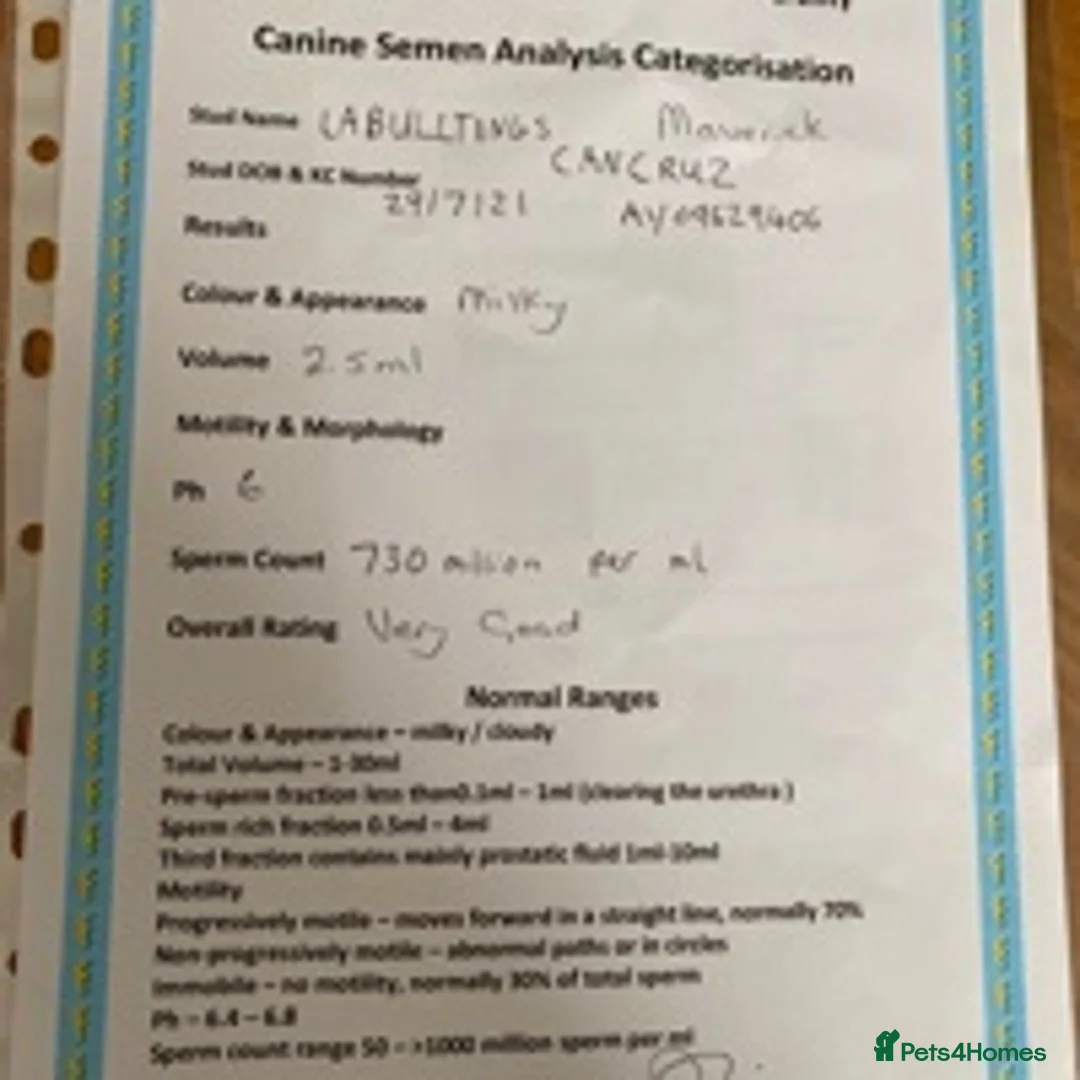 Canine Semen Analysis Categorisation
Stud Name LABULLTINGS Maverick
CANCRUZ
Stud DOB & KC Number
29/7/21 AY09629406
Results
Colour & Appearance Milky
Volume 2.5ml
Motility & Morphology
Ph 6
Sperm Count 730 million per ml
Overall Rating Very Good
Normal Ranges
Colour & Appearance – milky / cloudy
Total Volume – 1-30ml
Pre-sperm fraction less than0.1ml – 1ml (clearing the urethra )
Sperm rich fraction 0.5ml – 4ml
Third fraction contains mainly prostatic fluid 1ml-10ml
Motility
Progressively motile – moves forward in a straight line, normally 70%
Non-progressively motile – abnormal paths or in circles
Immobile – no motility, normally 30% of total sperm
Ph – 6.4 – 6.8
Sperm count range 50 – >1000 million sperm per ml
Pets4Homes